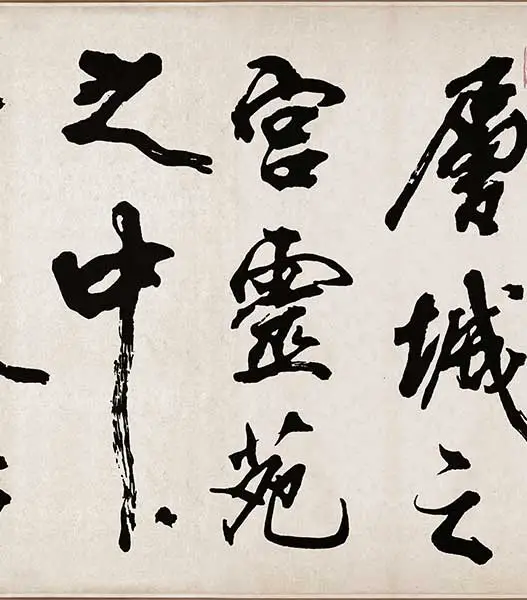 層城云
宮靈苑
之中